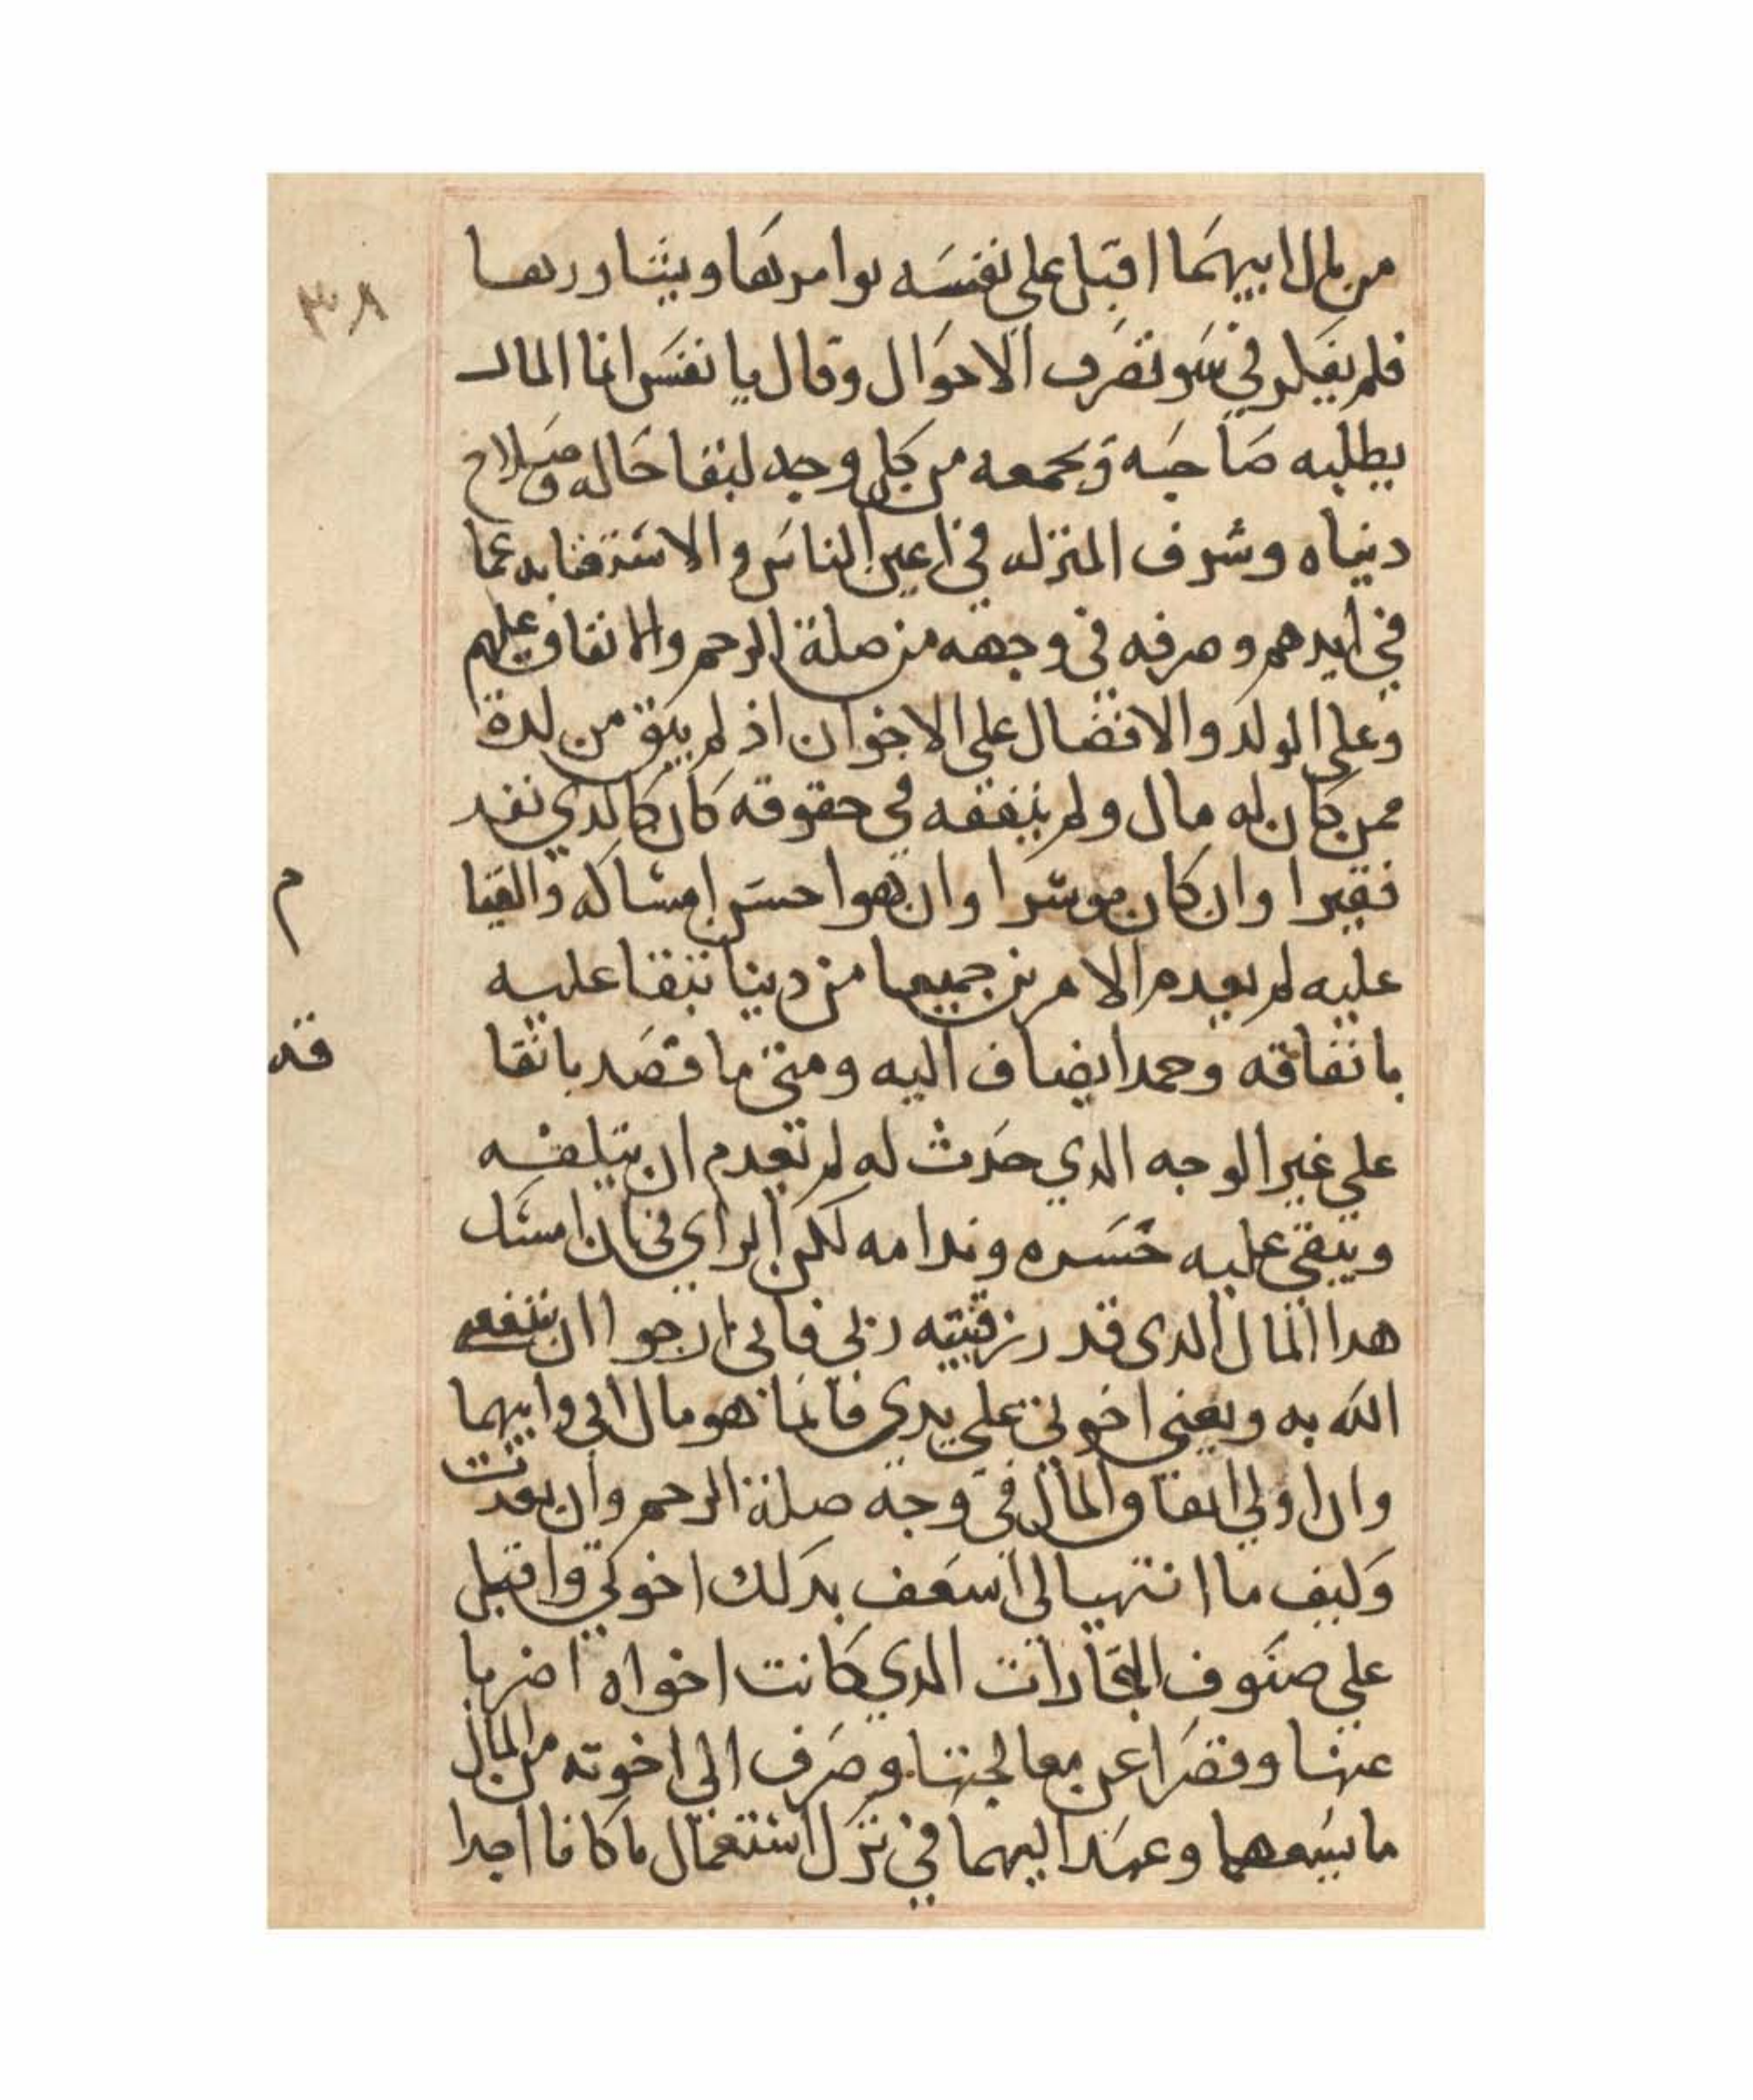 ٣٨
من مال ابيهما اقبل على نفسه يوامرها ويشاورها
فلم يفكر في سو تصرف الاحوال وقال يا نفس انما المال
يطلبه صاحبه ويجمعه من كل وجه لبقا حاله وصلاح
دنياه وشرف المنزله في اعين الناس والاستغنا به عما
في ايدهم وصرفه في وجهه من صلة الرحم والانفاق عليهم
وعلي الولد والافضال علي الاخوان اذ لم يبق من لدة
ممن كان له مال ولم ينفقه في حقوقه كان كالدي نفد
فقيرا وان كان موسرا وان هوا حسن امساكه والقيا
عليه لم يعدم الامرين جميعا من دينا تبقا عليه
بانفاقه وحمدا يضاف اليه ومتي ما قصد باتقا
علي غير الوجه الدي حدث له لم تعدم ان يتلفه
ويبقي عليه حسره وندامه لكن الراي في بان امسك
هدا المال الدى قد رزقيته ربي فاني ارجوا ان ينفعي
الله به ويغني اخوتي علي يدى فانما هو مال ابي وابيهما
وان اولي انفاق المال في وجه صلة الرحم وان بعدت
وكيف ما انتهيا لي اسعف بدلك اخوتي واقبل
علي صنوف التجارات الدي كانت اخواه اضربا
عنها وقصرا عن معالجتها وصرف الي اخوته من المال
ما يسعهما وعهد اليهما في ترك استعمال ما كانا اجدا
م
قد